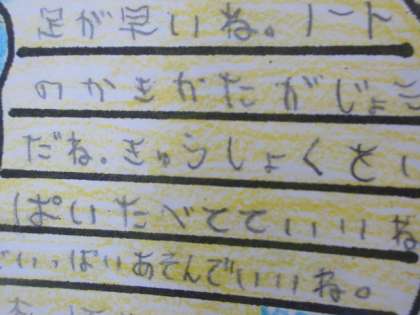 足が思いね。ノート
のかきかたがじょう
だね。きゅうしょくをい
ぱいたべてていいね
いっぱいあそんでいいね。